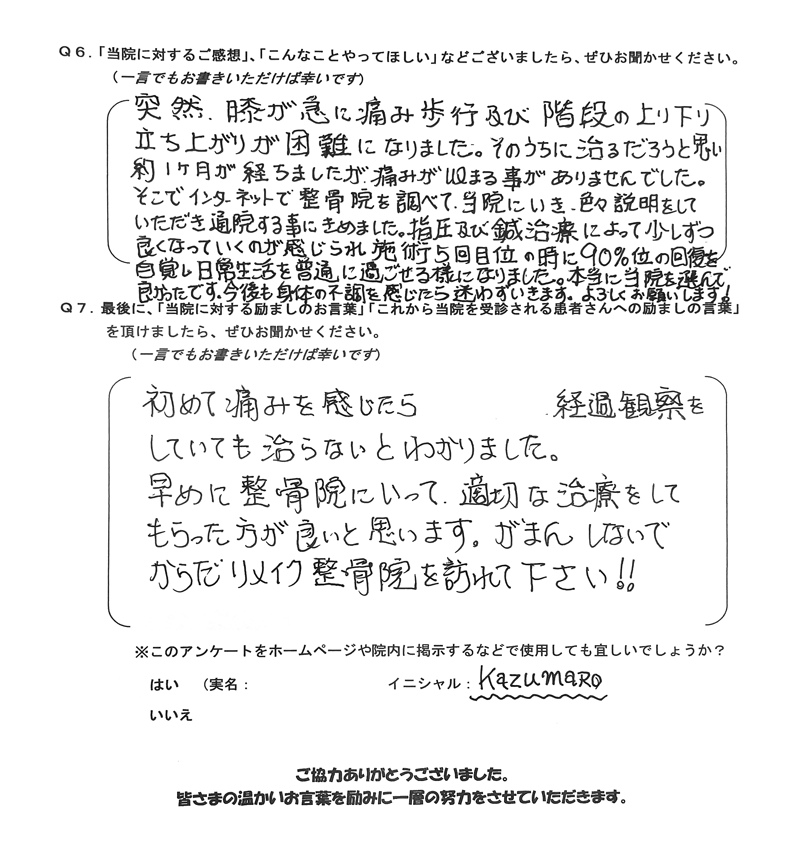 Q6.「当院に対するご感想」、「こんなことやってほしい」などございましたら、ぜひお聞かせください。
（一言でもお書きいただけば幸いです）
突然、膝が急に痛み歩行及び階段の上り下り
立ち上がりが困難になりました。そのうちに治るだろうと思い
約1ヶ月が経ちましたが、痛みが収まる事がありませんでした。
そこでインターネットで整骨院を調べて、当院にいき、色々説明をして
いただき通院する事にきめました。指圧及び鍼治療によって少しずつ
良くなっていくのが感じられ施術5回目位の時に90%位の回復を
自覚し日常生活を普通に過ごせる様になりました。本当に当院を選んで
良かったです。今後も身体の不調を感じたら迷わずいきます。よろしくお願いします!
Q7. 最後に、「当院に対する励ましのお言葉」「これから当院を受診される患者さんへの励ましの言葉」
を頂けましたら、ぜひお聞かせください。
（一言でもお書きいただけば幸いです）
初めて痛みを感じたら 、経過観察を
していても治らないとわかりました。
早めに整骨院にいって、適切な治療をして
もらった方が良いと思います。がまんしないで
からだリメイク整骨院を訪れて下さい!!
※このアンケートをホームページや院内に掲示するなどで使用しても宜しいでしょうか？
はい （実名： イニシャル： KAZUMARO
いいえ
ご協力ありがとうございました。
皆さまの温かいお言葉を励みに一層の努力をさせていただきます。